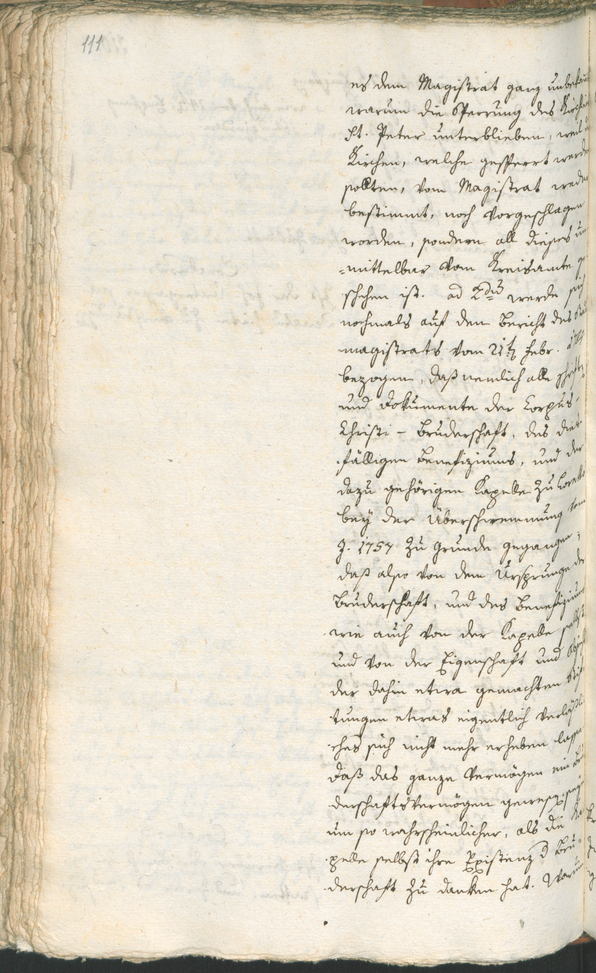 111
es dem Magistrat ganz unbekannt
warum die Sperrung des Kirchls
St. Peter unterblieben, weil
Kirchen, welche gesperrt werden
sollten, vom Magistrat weder
bestimmt, noch vorgeschlagen
worden, sondern all dieses un
-mittelbar vom Kreisamte ge
schehen ist. ad 2dum werde sich
nochmals auf den Bericht des
magistrats vom 21t Febr.
bezogen, daß nemlich alle Schriften
und Dokumente der Corpus-
Christi-Bruderschaft, des dies
fälligen Benefiziums, und der
dazu gehörigen Kapelle zu Loretto
bey der Überschwemmung vom
J. 1757 zu Grunde gegangen;
daß also von dem Ursprunge der
Bruderschaft, und des Benefiziums
wie auch von der Kapelle selbst
und von der Eigenschaft und
der dahin etwa gemachten Stif
tungen etwas eigentlich verläßli
ches sich nicht mehr erheben lasse
daß das ganze Vermögen ein Bru
derschaftsvermögen gewesen sey
um so wahrscheinlicher, als die Ka
pelle selbst ihre Existenz d. Bru-
derschaft zu danken hat. Warum